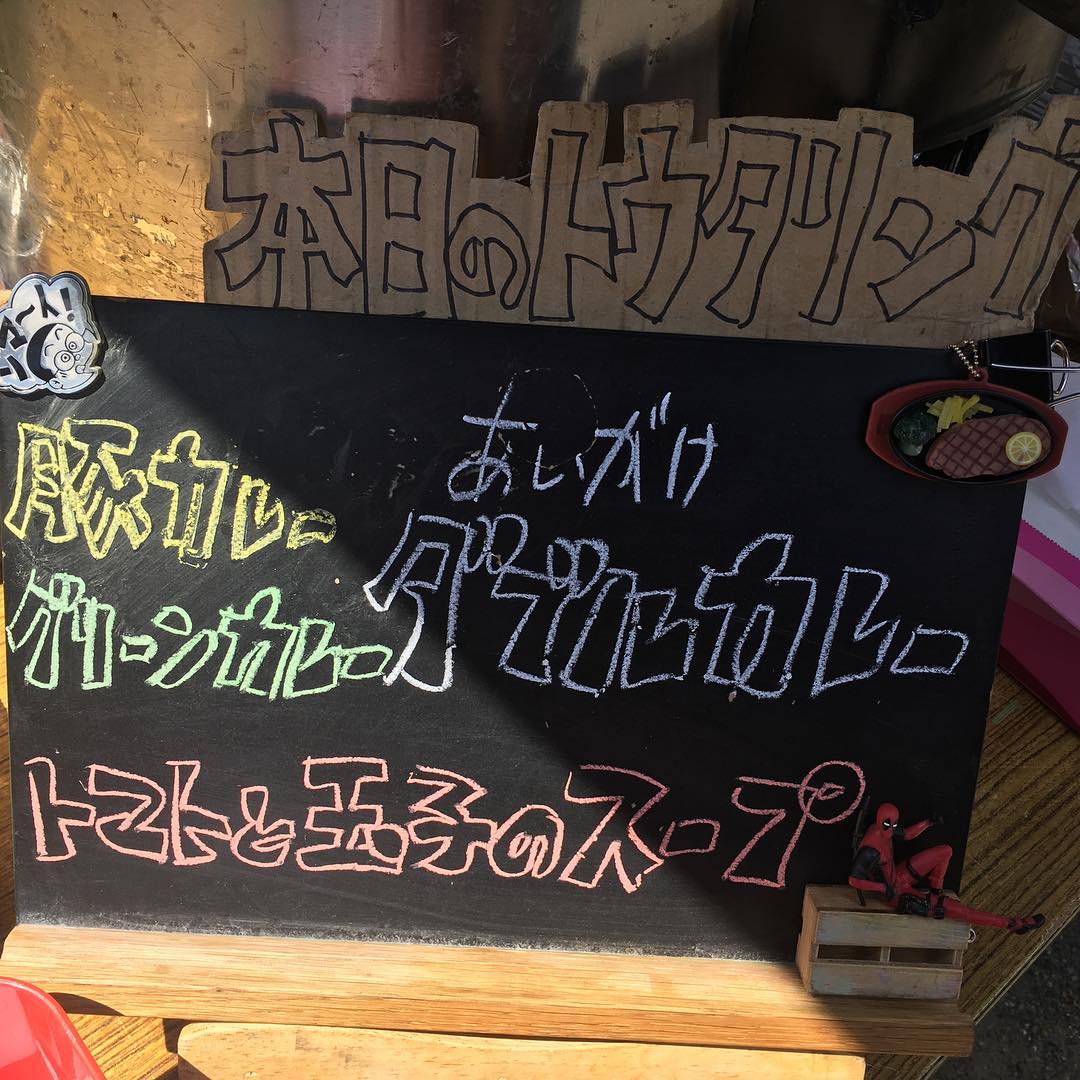 本日のトウタリング
豚カレー
あいがけ
ダブルカレー
グリーンカレー
トマトと玉子のスープ